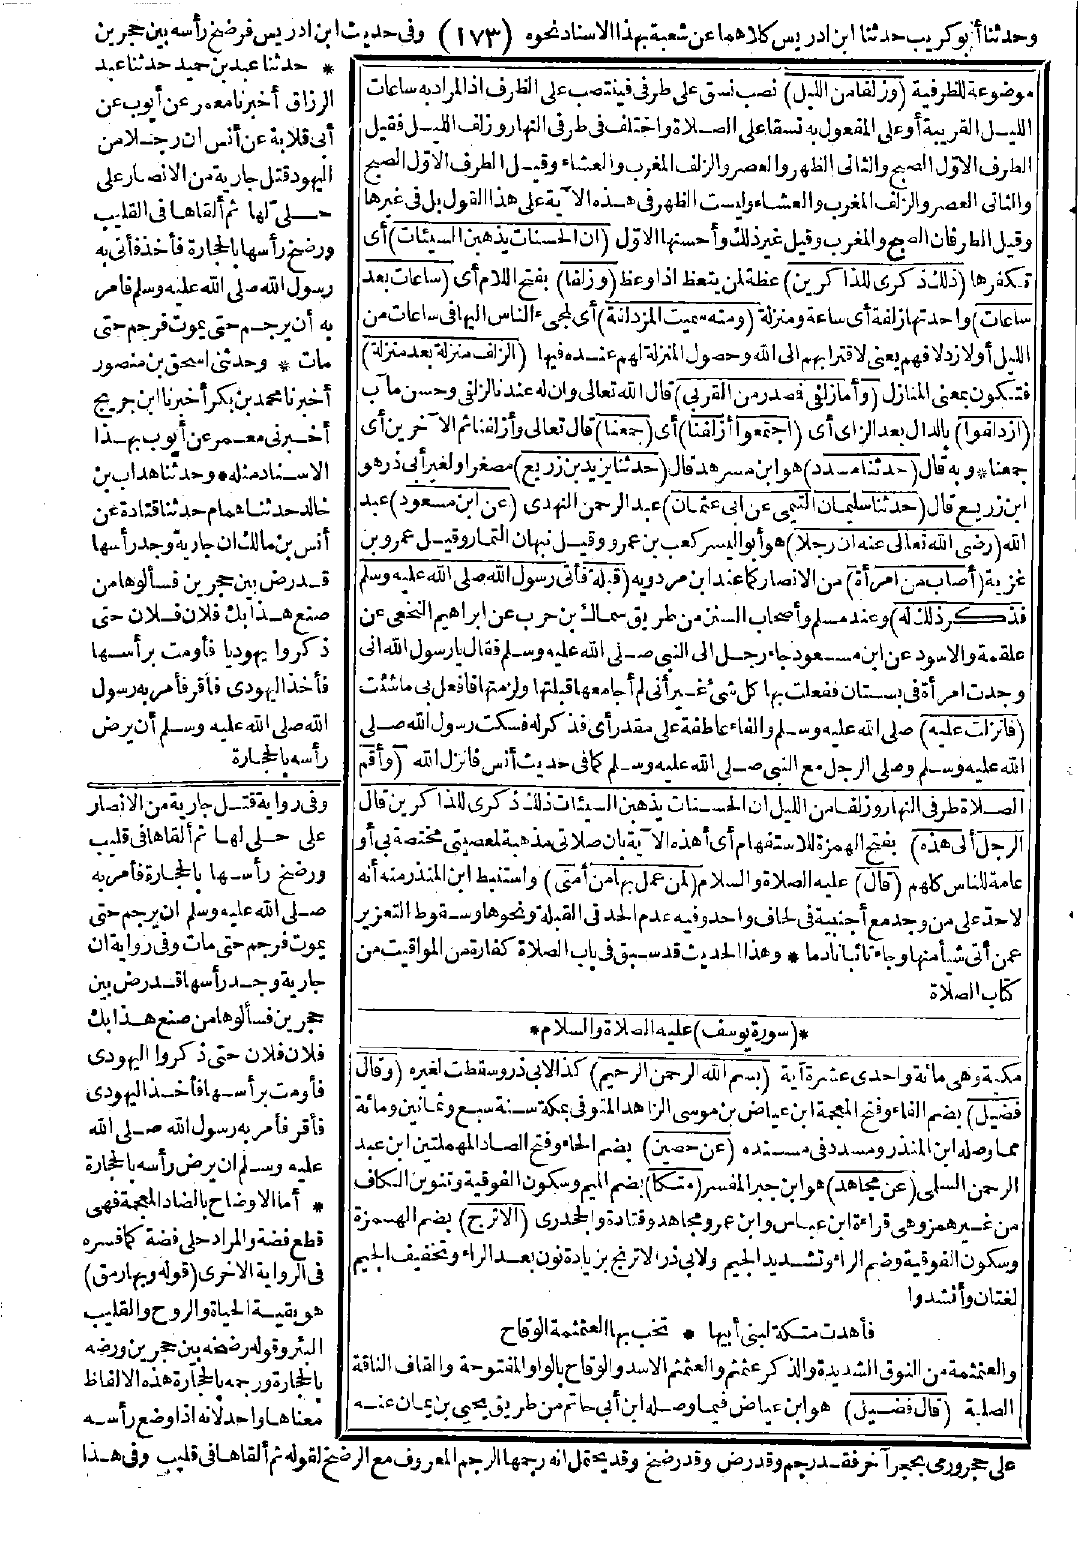 وحدثنا أبو كريب حدثنا ابن ادريس كلاهما عن شعبة بهذا الاسناد نحوه (١٧٣) وفى حديث ابن ادريس فرضخ رأسه بين حجرين
موضوعة للظرفية (وزلفا من الليل) نصب نسق على طرفى فينتصب على الظرف اذ المراد به ساعات
الليل القريبة أو على المفعول به نسقا على الصلاة واختلف فى طرفى النهار وزلف الليل فقيل
الطرف الاوّل الصبح والثانى الظهر والعصر والزلف المغرب والعشاء وقيل الطرف الاوّل الصبح
والثانى العصر والزلف المغرب والعشاء وليست الظهر فى هذه الآية على هذا القول بل فى غيرها
وقيل الطرفان الصبح والمغرب وقيل غير ذلك وأحسنها الاوّل (ان الحسنات يذهبن السيئات) أى
تكفرها (ذلك ذكرى للذاكرين) عظة لمن يتعظ اذا وعظ (وزلفا) بفتح اللام أى (ساعات بعد
ساعات) واحدتها زلفة أى ساعة ومنزلة (ومنه سميت المزدلفة) أى لمجىء الناس اليها فى ساعات من
الليل أو لازدلافهم يعنى لاقترابهم الى الله وحصول المنزلة لهم عنده فيها (الزلف منزلة بعد منزلة)
فتكون بمعنى المنازل (وأما زلفى فصدر من القربى) قال الله تعالى وان له عندنا لزلفى وحسن مآب
(ازدلفوا) بالدال بعد الزاى أى (اجتمعوا أزلفنا) أى (جمعنا) قال تعالى وأزلفنا ثم الآخرين أى
جمعنا * وبه قال (حدثنا مسدد) هو ابن مسرهد قال (حدثنا يزيد بن زريع) مصغرا ولغير أبى ذر هو
ابن زريع قال (حدثنا سليمان التيمى عن ابى عثمان) عبد الرحمن النهدى (عن ابن مسعود) عبد
الله (رضى الله تعالى عنه ان رجلا) هو أبو اليسر كعب بن عمرو وقيل نبهان التمار وقيل عمرو بن
غزية (أصاب من امرأة) من الانصار كما عند ابن مردويه (قبلة فأتى رسول الله صلى الله عليه وسلم
فذكر ذلك له) وعند مسلم وأصحاب السنن من طريق سماك بن حرب عن ابراهيم النخعى عن
علقمة والاسود عن ابن مسعود جاء رجل الى النبى صلى الله عليه وسلم فقال يا رسول الله انى
وجدت امرأة فى بستان ففعلت بها كل شئ غير أنى لم أجامعها قبلتها ولزمتها فافعل بى ما شئت
(فانزلت عليه) صلى الله عليه وسلم والفاء عاطفة على مقدر أى فذكر له فسكت رسول الله صلى
الله عليه وسلم وصلى الرجل مع النبى صلى الله عليه وسلم كما فى حديث أنس فانزل الله (وأقم
الصلاة طرفى النهار وزلفا من الليل ان الحسنات يذهبن السيئات ذلك ذكرى للذاكرين قال
الرجل ألى هذه) بفتح الهمزة للاستفهام أى أهذه الآية بان صلاتى مذهبة لمعصيتى مختصة بى أو
عامة للناس كلهم (قال) عليه الصلاة والسلام (لمن عمل بها من أمتى) واستنبط ابن المنذر منه أنه
لا حد على من وجد مع أجنبية فى لحاف واحد وفيه عدم الحد فى القبلة ونحوها وسقوط التعزير
عمن أتى شيأ منها وجاء تائبا نادما * وهذا الحديث قد سبق فى باب الصلاة كفارة من المواقيت من
كتاب الصلاة
*(سورة يوسف) عليه الصلاة والسلام*
مكية وهى مائة واحدى عشرة آية (بسم الله الرحمن الرحيم) كذا لابى ذر وسقطت لغيره (وقال
فضيل) بضم الفاء وفتح المعجمة ابن عياض بن موسى الزاهد المتوفى بمكة سنة سبع وثمانين ومائة
مما وصله ابن المنذر ومسدد فى مسنده (عن حصين) بضم الحاء وفتح الصاد المهملتين ابن عبد
الرحمن السلمى (عن مجاهد) هو ابن جبر المفسر (متكا) بضم الميم وسكون الفوقية وتنوين الكاف
من غير همز وهى قراءة ابن عباس وابن عمر ومجاهد وقتادة والجحدرى (الاترج) بضم الهمزة
وسكون الفوقية وضم الراء وتشديد الجيم ولابى ذر الاترنج بزيادة نون بعد الراء وتخفيف الجيم
لغتان وأنشدوا
فأهدت متكة لبنى أبيها * تخب بها العثمثمة الوقاح
والعثمثمة من النوق الشديدة والذكر عثمثم والعثمثم الاسد والوقاح بالواو المفتوحة والقاف الناقة
الصلبة (قال فضيل) هو ابن عياض فيما وصله ابن أبى حاتم من طريق يحيى بن يمان عنه
* حدثنا عبد بن حميد حدثنا عبد
الرزاق أخبرنا معمر عن أيوب عن
أبى قلابة عن أنس ان رجلا من
اليهود قتل جارية من الانصار على
حلى لها ثم ألقاها فى القليب
ورضخ رأسها بالحجارة فأخذ فأتى به
رسول الله صلى الله عليه وسلم فامر
به أن يرجم حتى يموت فرجم حتى
مات * وحدثنى اسحق بن منصور
أخبرنا محمد بن بكر أخبرنا ابن جريج
أخبرنى معمر عن أيوب بهذا
الاسناد مثله * وحدثنا هداب بن
خالد حدثنا همام حدثنا قتادة عن
أنس بن مالك ان جارية وجد رأسها
قد رض بين حجرين فسألوها من
صنع هذا بك فلان فلان حتى
ذكروا يهوديا فأومت برأسها
فأخذ اليهودى فأقر فأمر به رسول
الله صلى الله عليه وسلم أن يرض
رأسه بالحجارة
وفى رواية قتل جارية من الانصار
على حلى لها ثم ألقاها فى قليب
ورضخ رأسها بالحجارة فأمر به
صلى الله عليه وسلم ان يرجم حتى
يموت فرجم حتى مات وفى رواية ان
جارية وجد رأسها قد رض بين
حجرين فسألوها من صنع هذا بك
فلان فلان حتى ذكروا اليهودى
فأومت برأسها فأخذ اليهودى
فأقر فأمر به رسول الله صلى الله
عليه وسلم ان يرض رأسه بالحجارة
* أما الاوضاح بالضاد المعجمة فهى
قطع فضة والمراد حلى فضة كما فسره
فى الرواية الاخرى (قوله وبها رمق)
هو بقية الحياة والروح والقليب
البئر وقوله رضخه بين حجرين ورضه
بالحجارة ورجمه بالحجارة هذه الالفاظ
معناها واحد لانه اذا وضع رأسه
على حجر ورمى بحجر آخر فقد رجم وقد رض وقد رضخ وقد يحتمل انه رجمها الرجم المعروف مع الرضخ لقوله ثم ألقاها فى قليب وفى هذا